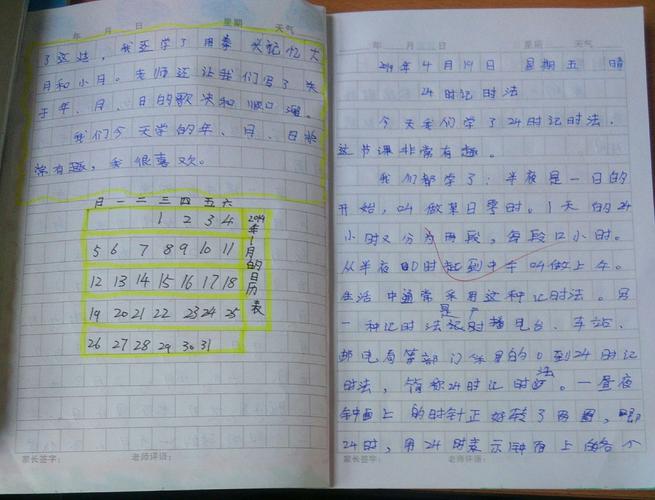 年 月 日 星期 天气
了这些，我还学了用拳头记忆大
月和小月。老师还让我们写了关
于年、月、日的歌决和顺口溜。
我们今天学的年、月、日非
常有趣，我很喜欢。
日 一 二 三 四 五 六
1 2 3 4
5 6 7 8 9 10 11
12 13 14 15 16 17 18
19 20 21 22 23 24 25
26 27 28 29 30 31
年1月的日历表
家长签字： 老师评语：
年 月 日 星期 天气
年4月19日 星期五 晴
24时记时法
今天我们学了24时记时法，
这节课非常有趣。
我们都学了：半夜是一日的
开始，叫做某日零时。1天的24
小时又分为两段，每段12小时。
从半夜0时起到中午叫做上午。
生活中通常采用这种记时法。另
一种记时法是广播电台、车站、
邮电局等部门采用的0到24时记
时法，简称24时记时法。一昼夜
钟面上的时针正好转了两圈，即
24时，用24时表示钟面上的各个
家长签字： 老师评语：